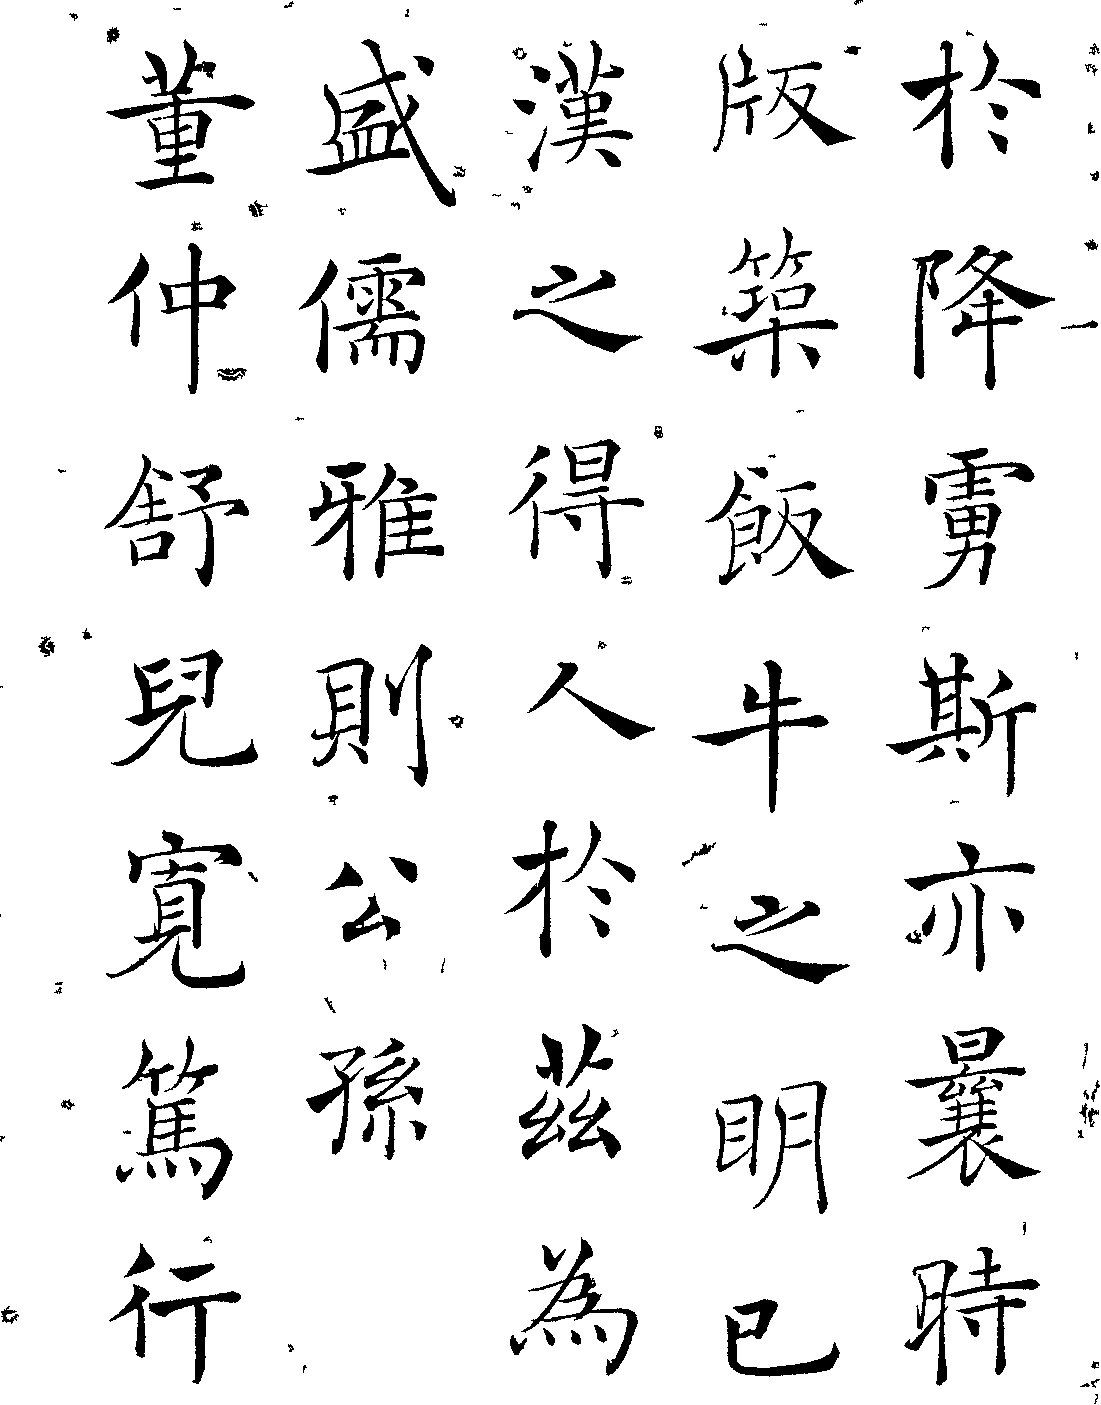 於降虜斯亦曩時
版築飯牛之朙已
漢之得人於茲為
盛儒雅則公孫
董仲舒兒寬篤行